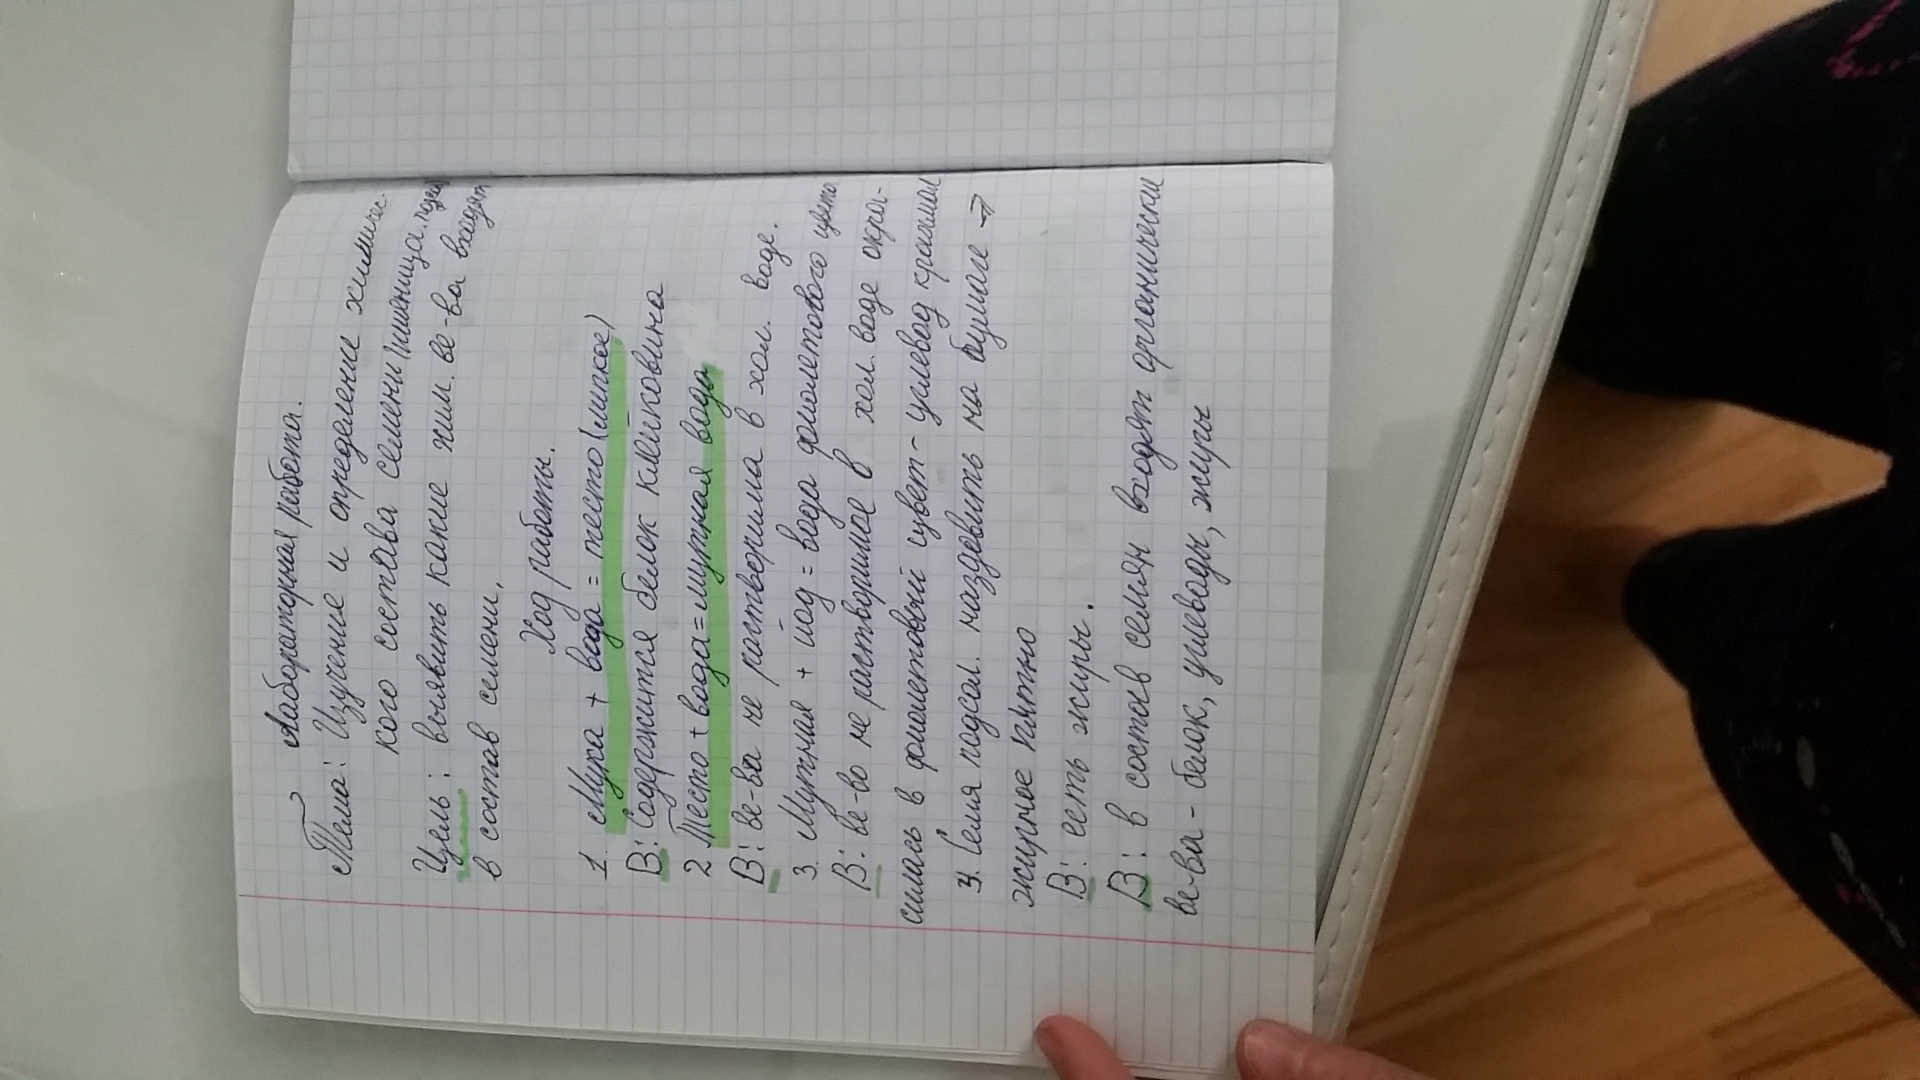 Лабораторная работа.
Тема: Изучение и определение химичес-
кого состава семени (пшеница, подсо
Цель: выявить какие хим. ве-ва входят
в состав семени.
Ход работы.
1. Мука + вода = тесто (липкое)
В: Содержится белок клейковина
2 Тесто + вода = мутная вода
В: ве-ва не растворима в хол. воде.
3. Мутная + йод = вода фиолетового цвета
В: ве-во не растворимое в хол. воде окра-
силась в фиолетовый цвет - углевод крахмал
4. Семя подсол. наздевить на бумаге →
жирное пятно
В: есть жиры.
В: в состав семян входят органически
ве-ва - белок, углеводы, жиры